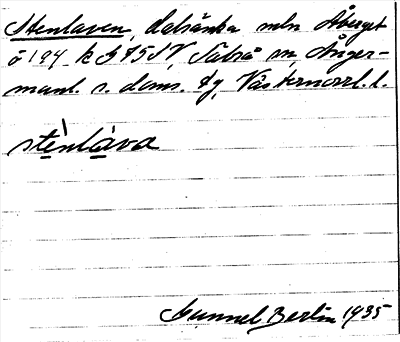 Stenlaven, dalsänka mln Åberget
ö 194 k B 75 SV, Sabrå sn, Ånger-
manl. s. doms. fg, Västernorrl. l.
stènláva
Gunnel Berlin 1935